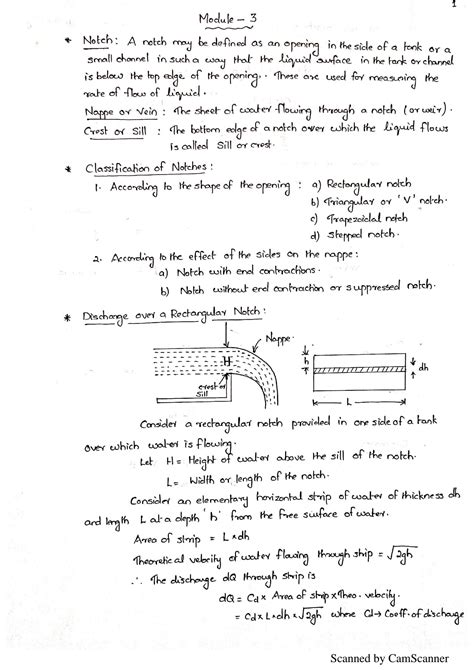 1
Module - 3
* Notch: A notch may be defined as an opening in the side of a tank or a
small channel in such a way that the liquid surface in the tank or channel
is below the top edge of the opening. These are used for measuring the
rate of flow of liquid.
Nappe or Vein : The sheet of water flowing through a notch (or weir).
Crest or Sill : The bottom edge of a notch over which the liquid flows
is called Sill or crest.
* Classification of Notches :
1. According to the shape of the opening : a) Rectangular notch
b) Triangular or 'V' notch.
c) Trapezoidal notch
d) Stepped notch.
2. According to the effect of the sides on the nappe :
a) Notch with end contractions.
b) Notch without end contraction or suppressed notch.
* Discharge over a Rectangular Notch :
Nappe
H
crest or
sill
h
dh
L
Consider a rectangular notch provided in one side of a tank
over which water is flowing.
Let H = Height of water above the sill of the notch.
L = Width or length of the notch.
Consider an elementary horizontal strip of water of thickness dh
and length L at a depth 'h' from the free surface of water.
Area of strip = L×dh
Theoretical velocity of water flowing through strip = √2gh
∴ The discharge dQ through strip is
dQ = Cd × Area of strip × Theo. velocity.
= Cd × L×dh × √2gh where Cd → Coeff. of discharge
Scanned by CamScanner